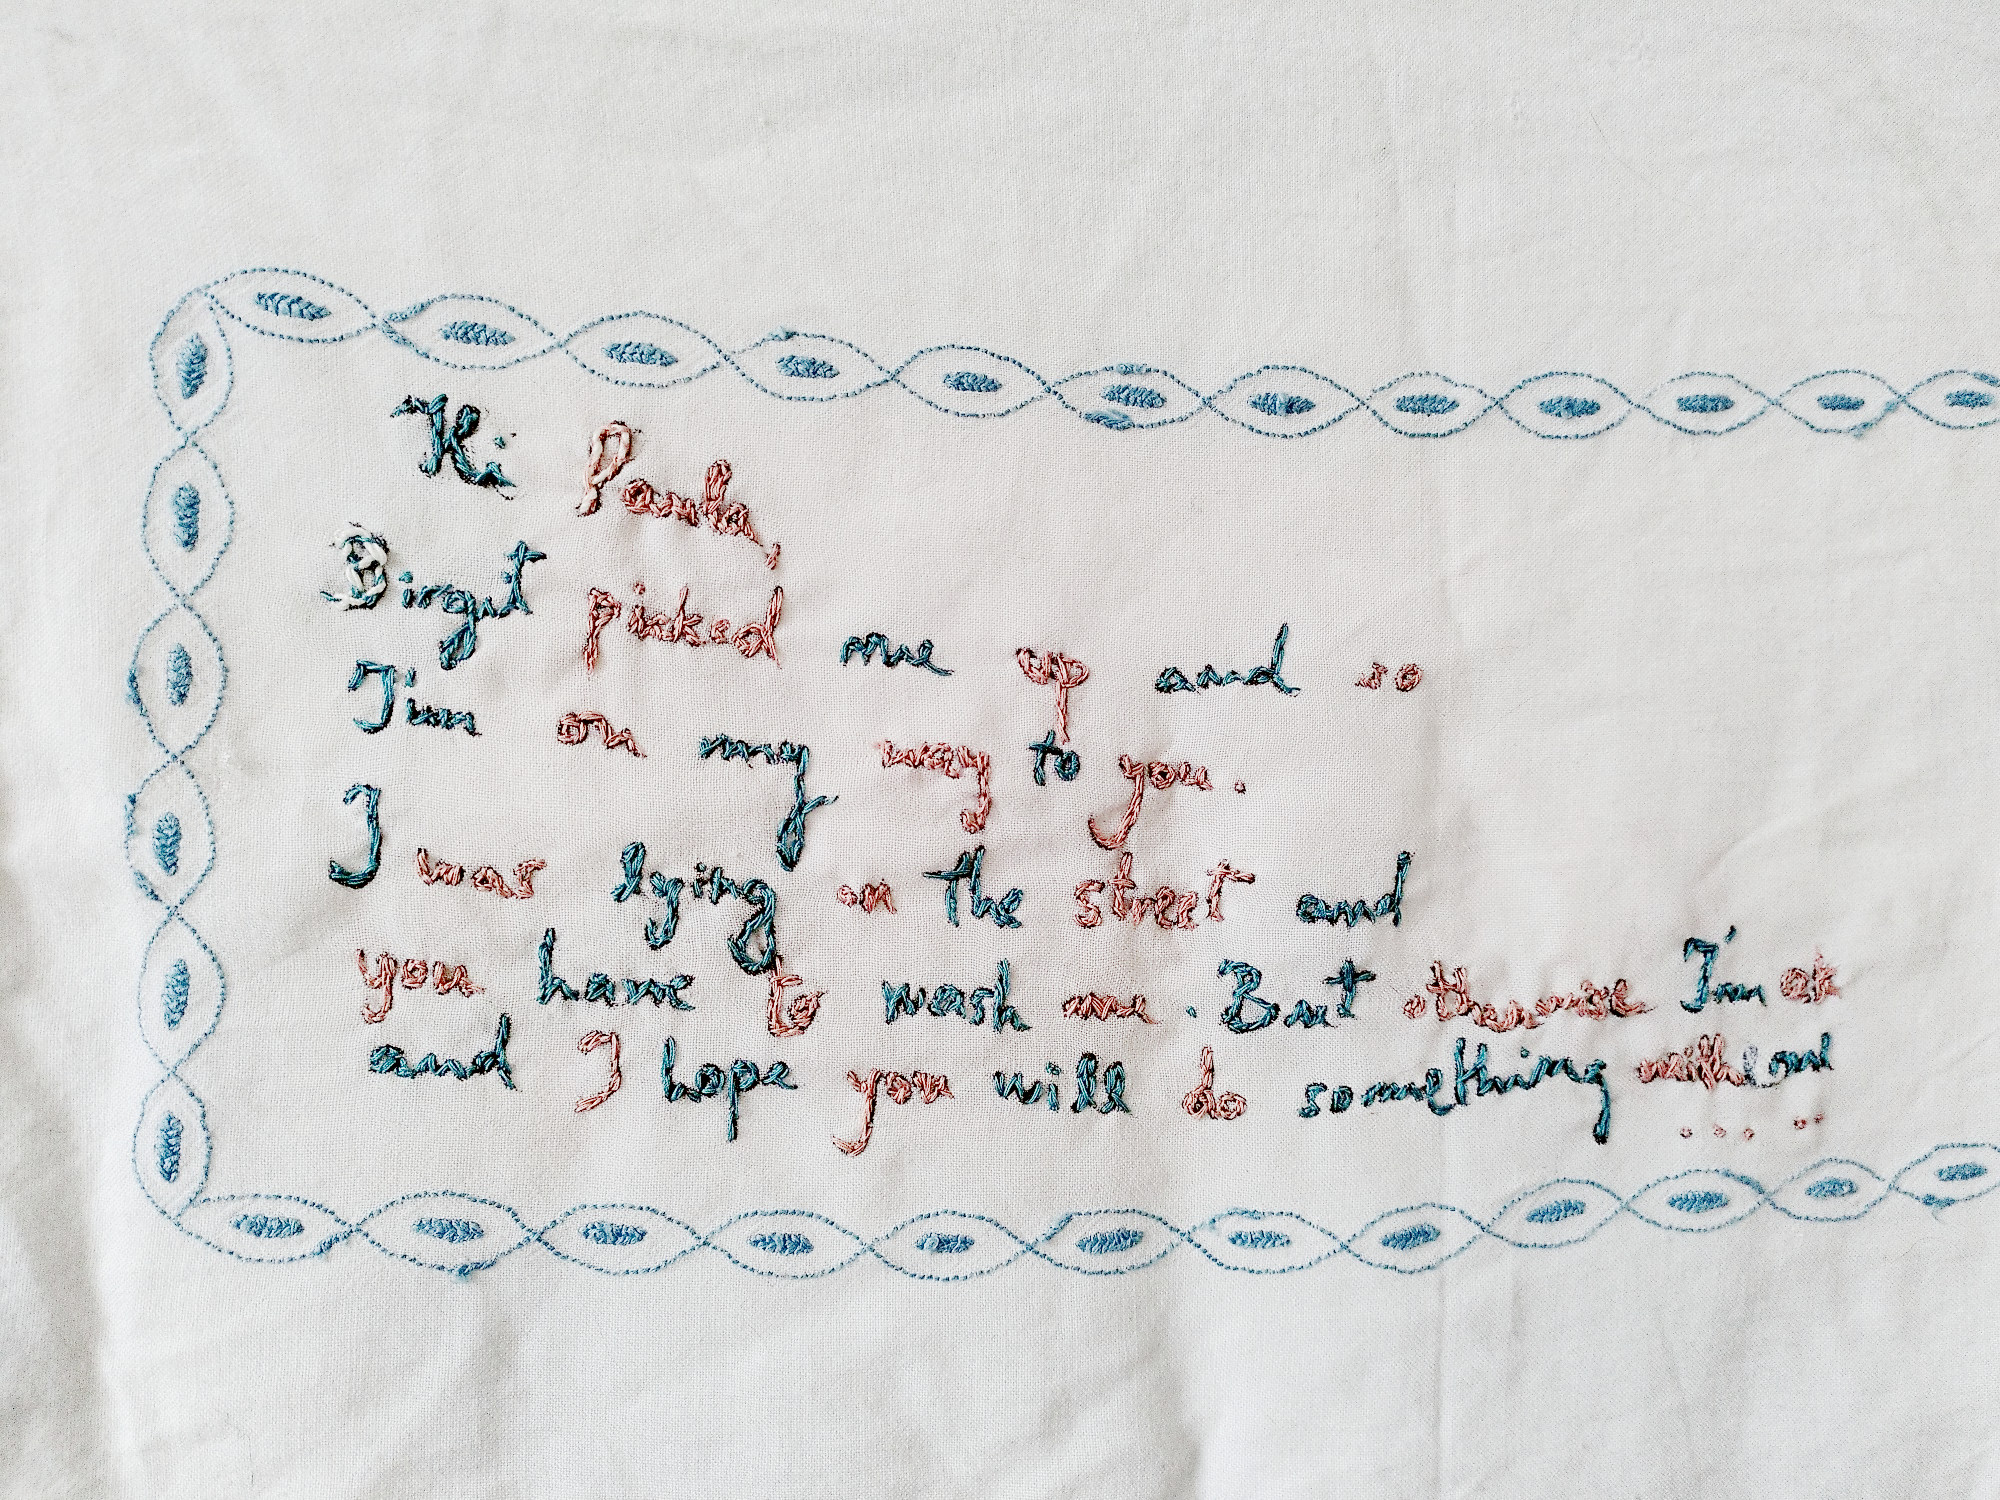 Hi Paula,
Birgit picked me up and so
I'm on my way to you.
I was lying on the street and
you have to wash me. But otherwise I'm ok
and I hope you will do something with
.....